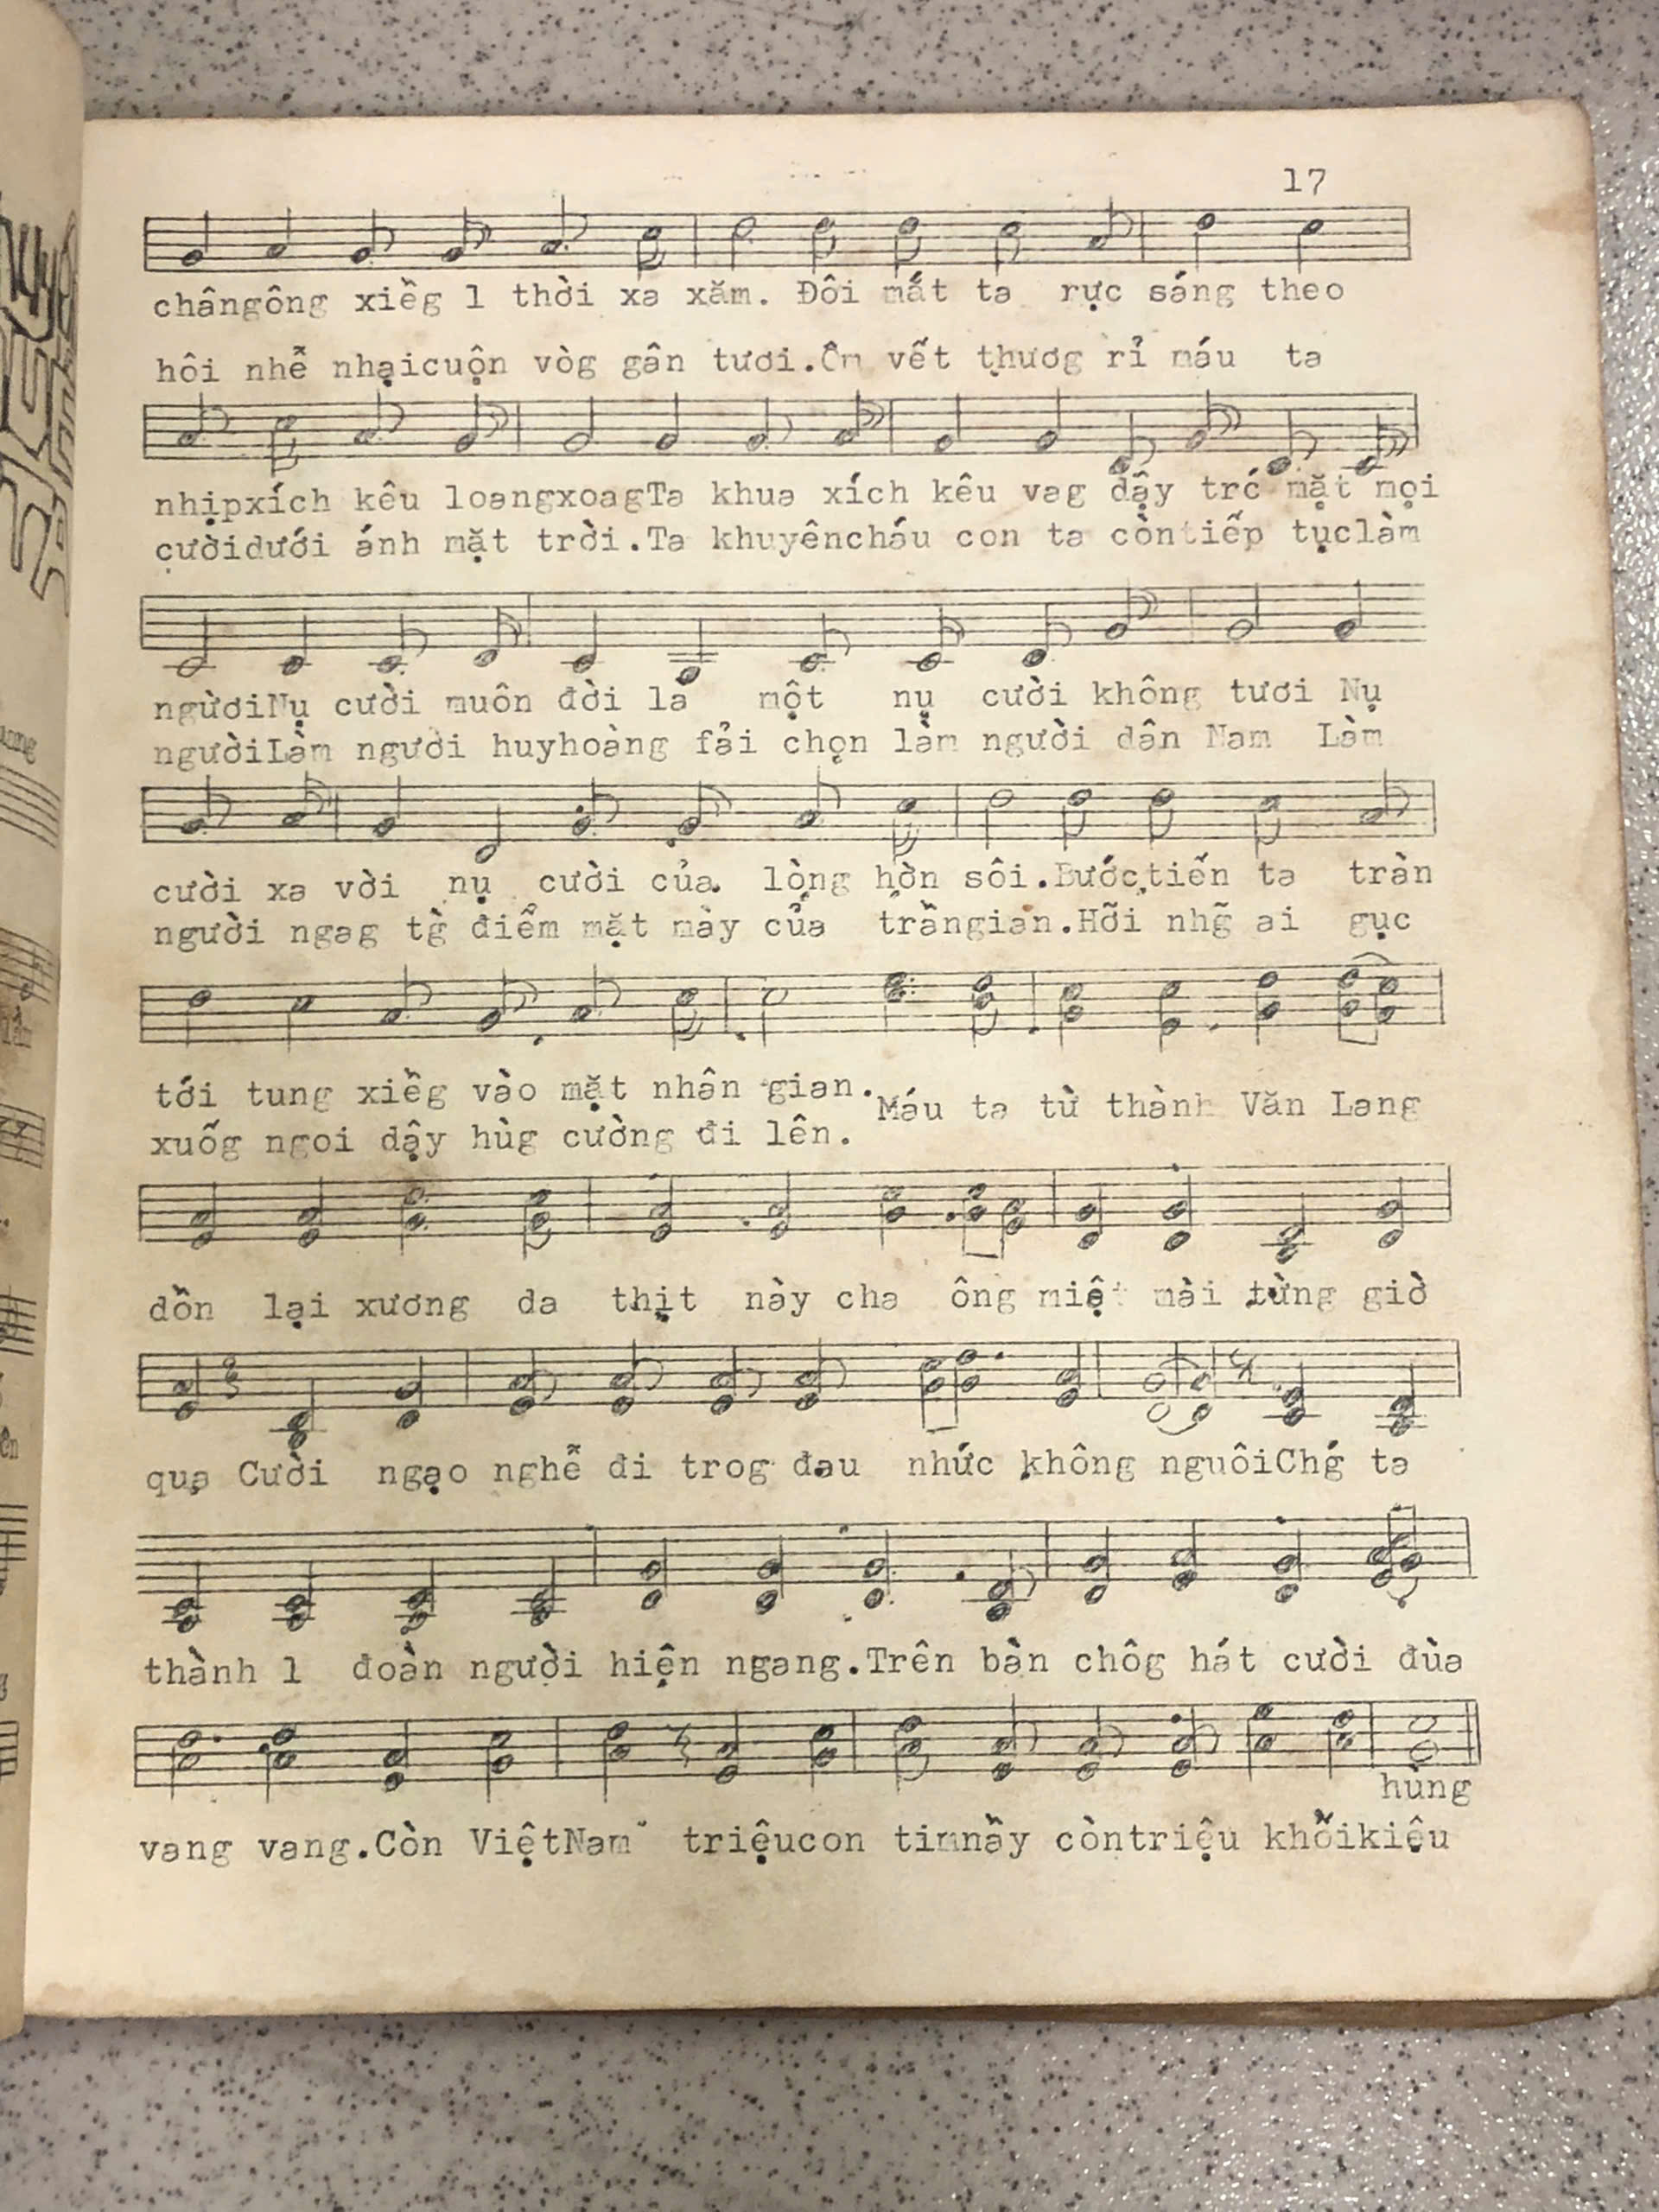 17
chângông xiềg 1 thời xa xăm. Đôi mắt ta rực sáng theo
hôi nhễ nhạicuộn vòg gân tươi.Ôm vết thươg rỉ máu ta
nhịpxích kêu loangxoagTa khua xích kêu vag dậy trć mặt mọi
cườidưới ánh mặt trời.Ta khuyêncháu con ta còntiếp tụclàm
ngừơiNụ cười muôn đời là một nụ cười không tươi Nụ
ngườiLàm người huyhoàng fải chọn làm người dân Nam Làm
cười xa vời nụ cười của lòng hờn sôi.Bước tiến ta tràn
người ngag tg̀ điểm mặt mày của trầngian.Hỡi nhg̃ ai gục
tới tung xiềg vào mặt nhân gian.
Máu ta từ thành Văn Lang
xuốg ngoi dậy hùg cường đi lên.
dồn lại xương da thịt này cha ông miệt mài từng giờ
qua Cười ngạo nghễ đi trog đau nhức không nguôiChǵ ta
thành 1 đoàn người hiện ngang.Trên bàn chôg hát cười đùa
vang vang.Còn ViệtNam triệucon timnầy còntriệu khỗikiệu
hùng